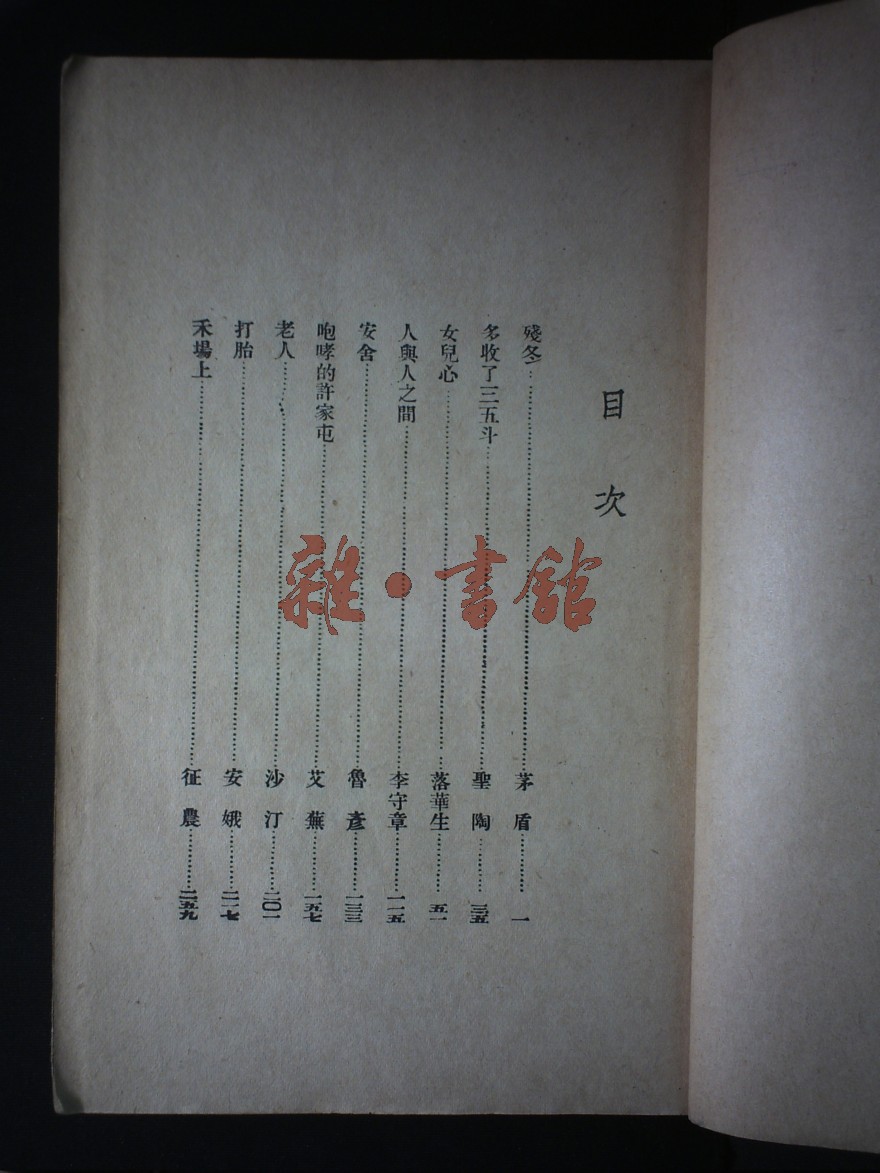 目次
殘冬……茅盾……一
多收了三五斗……聖陶……三五
女兒心……落華生……五一
人與人之間……李守章……一一五
安舍……魯彥……一三三
咆哮的許家屯……艾蕪……一五七
老人……沙汀……二〇一
打胎……安娥……二一七
禾場上……征農……二五九
雜·書館